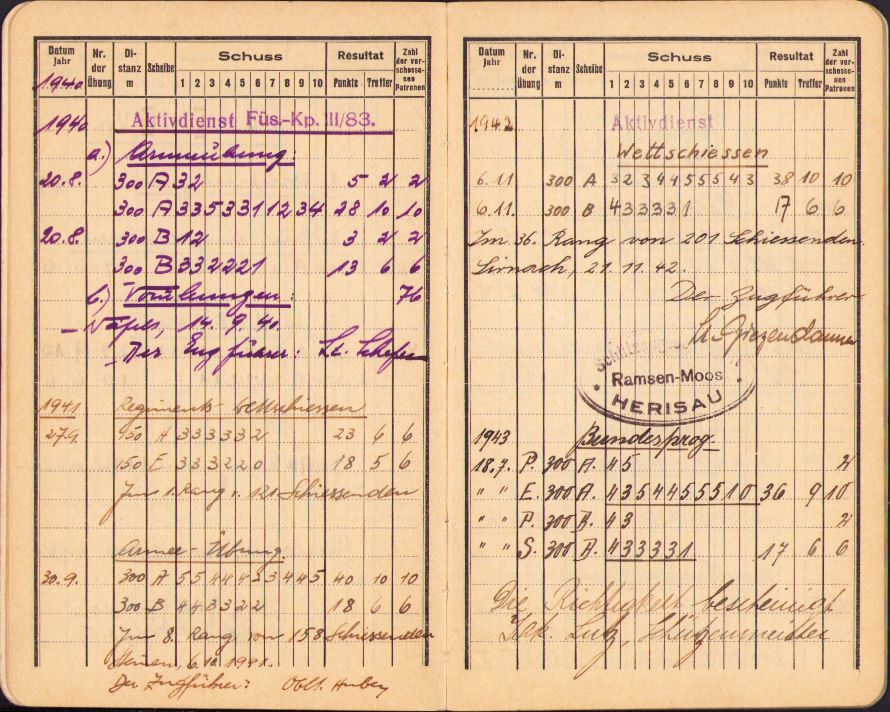 Datum Jahr Nr. der Übung Di- stanz m Scheibe Schuss Resultat Zahl der ver- schosse- nen Patronen
1 2 3 4 5 6 7 8 9 10 Punkte Treffer
1940
1940 Aktivdienst Füs.-Kp. III/83.
a.) Armeeübung:
20.8. 300 A 32 5 2 2
300 A 3353311234 28 10 10
20.8. 300 B 12 3 2 2
300 B 332221 13 6 6
b.) Vorübungen: 76
Näfels, 14. 9. 40.
Der Zugführer: Lt.
1941 Regiments-Wettschiessen
27.9. 150 A 333332 23 6 6
150 E 333220 18 5 6
Im 1. Rang v. 121 Schiessenden
Armee-Übung.
30.9. 300 A 5544423445 40 10 10
300 B 443322 18 6 6
Im 8. Rang von 158 Schiessenden
6.10.1941.
Der Zugführer: Oblt. Huber
Datum Jahr Nr. der Übung Di- stanz m Scheibe Schuss Resultat Zahl der ver- schosse- nen Patronen
1 2 3 4 5 6 7 8 9 10 Punkte Treffer
1942 Aktivdienst
Wettschiessen
6.11 300 A 3234455543 38 10 10
6.11. 300 B 433331 17 6 6
Im 36. Rang von 201 Schiessenden.
Sirnach, 21.11.42.
Der Zugführer
Lt. Giezendanner
Ramsen-Moos
HERISAU
1943 Bundesprog.
18.7. P. 300 A. 45 2
" " E. 300 A. 4354455510 36 9 10
" " P. 300 B. 43 2
" " S. 300 B. 433331 17 6 6
Die Richtigkeit bescheinigt
Jak. Lutz, Schützenmeister